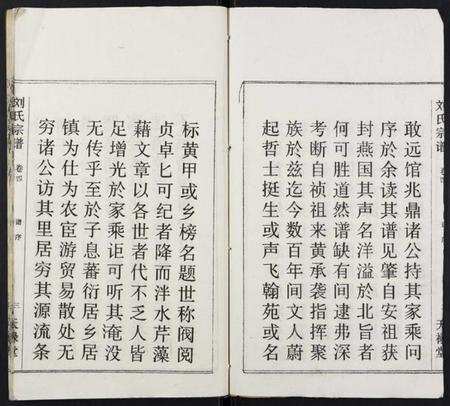 敢远馆兆鼎诸公持其家乘问
序於余读其谱见肇自安祖获
封燕国其声名洋溢於北旨者
何可胜道然谱缺有间逮弗深
考断自祯祖来黄承袭指挥聚
族於兹迄今数百年间文人蔚
起哲士挺生或声飞翰苑或名
刘氏宗谱
天禄堂
标黄甲或乡榜名题世称阀阅
贞卓匕可纪者降而泮水芹藻
藉文章以各世者代不乏人皆
足增光於家乘讵可听其淹没
无传乎至於子息蕃衍居乡居
镇为仕为农宦游贸易散处无
穷诸公访其里居穷其源流条
刘氏宗谱
卷四
谱序
三
天禄堂